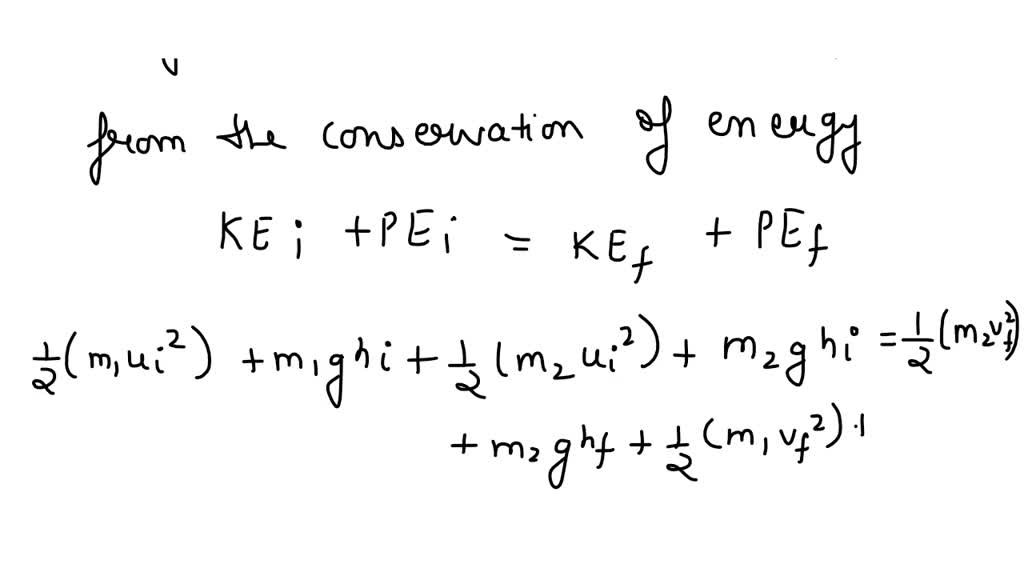 v
from the conservation of energy
KEi + PEi = KEf + PEf
½(m₁uᵢ²) + m₁ghi + ½(m₂uᵢ²) + m₂ghi = ½(m₂v_f²)
+ m₂ghf + ½(m₁v_f²)